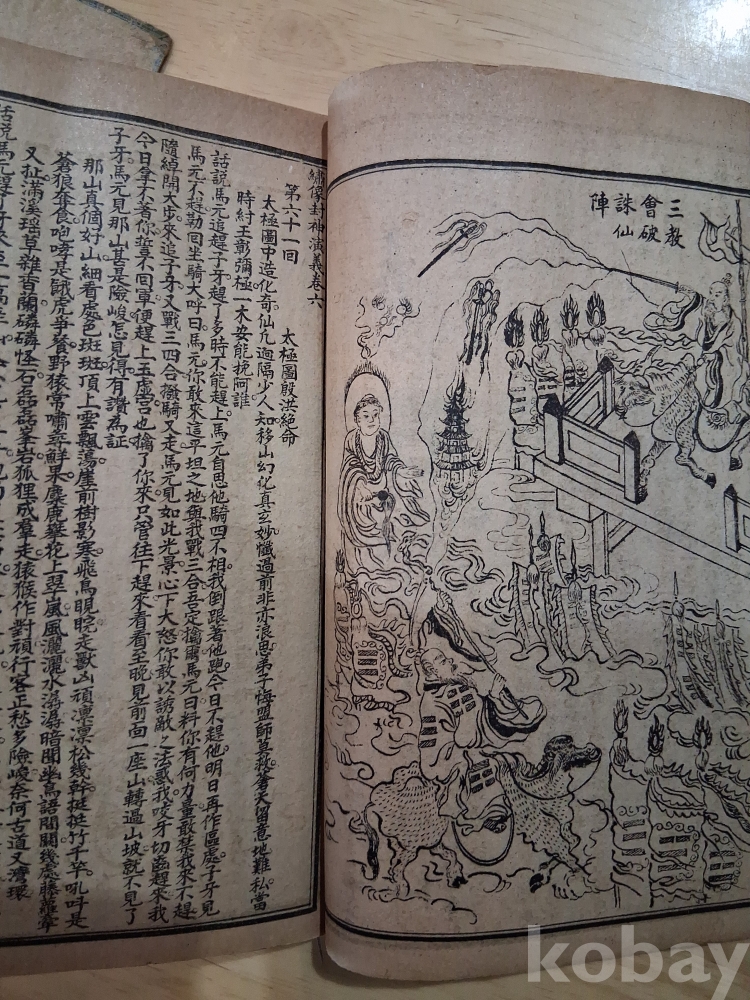 三教
會破
誅仙
陣
繡像封神演義卷六
第六十一回 太極圖殷洪絕命
太極圖中造化奇仙凢迥隔少人知移山幻化真玄妙懺過前非亦浪思弟子悔盟師莫救蒼天留意地難私當
時紂王彰彌極一木安能挽阿誰
話說馬元追趕子牙趕了多時不能趕上馬元自思他騎四不相我倒跟著他跑今日不趕他明日再作區處子牙見
馬元不趕勒回坐騎大呼曰馬元你敢來這平坦之地與我戰三合吾定擒爾馬元曰料你有何力量敢禁我來不趕
隨綽開大步來追子牙又戰三四合撥騎又走馬元見如此光景心下大怒你敢以誘敵之法欺我咬牙切齒趕來我
今日拿不著你誓不回軍便趕上玉虛宮也擒了你來只管往下趕來看看至晚見前面一座山轉過山坡就不見了
子牙馬元見那山甚是險峻怎見得有讚為証
那山真個好山細看處色斑斑頂上雲飄蕩崖前樹影寒飛鳥睍睆走獸凶頑凜凜松幾幹挺挺竹千竿吼叫是
蒼狼奪食咆哮是餓虎爭餐野猿常嘯尋鮮果麋鹿攀花上翠嵐風灑灑水潺潺暗聞幽鳥語間關幾處藤蘿牽
又扯滿溪瑤草雜香蘭磷磷怪石磊磊峯岩狐狸成羣走猿猴作對頑行客正愁多險峻奈何古道又灣環
話說馬元
kobay